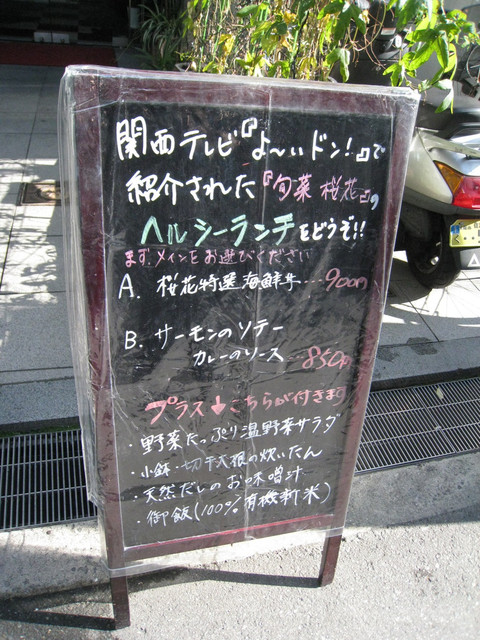 関西テレビ『よ〜いドン!』で
紹介された『旬菜 桜花』の
ヘルシーランチをどうぞ!!
まずメインをお選びください
A. 桜花特選海鮮丼…900円
B. サーモンのソテー
カレーのソース…850円
プラス↓こちらが付きます
・野菜たっぷり温野菜サラダ
・小鉢・切干大根の炊いたん
・天然だしのお味噌汁
・御飯(100%有機新米)